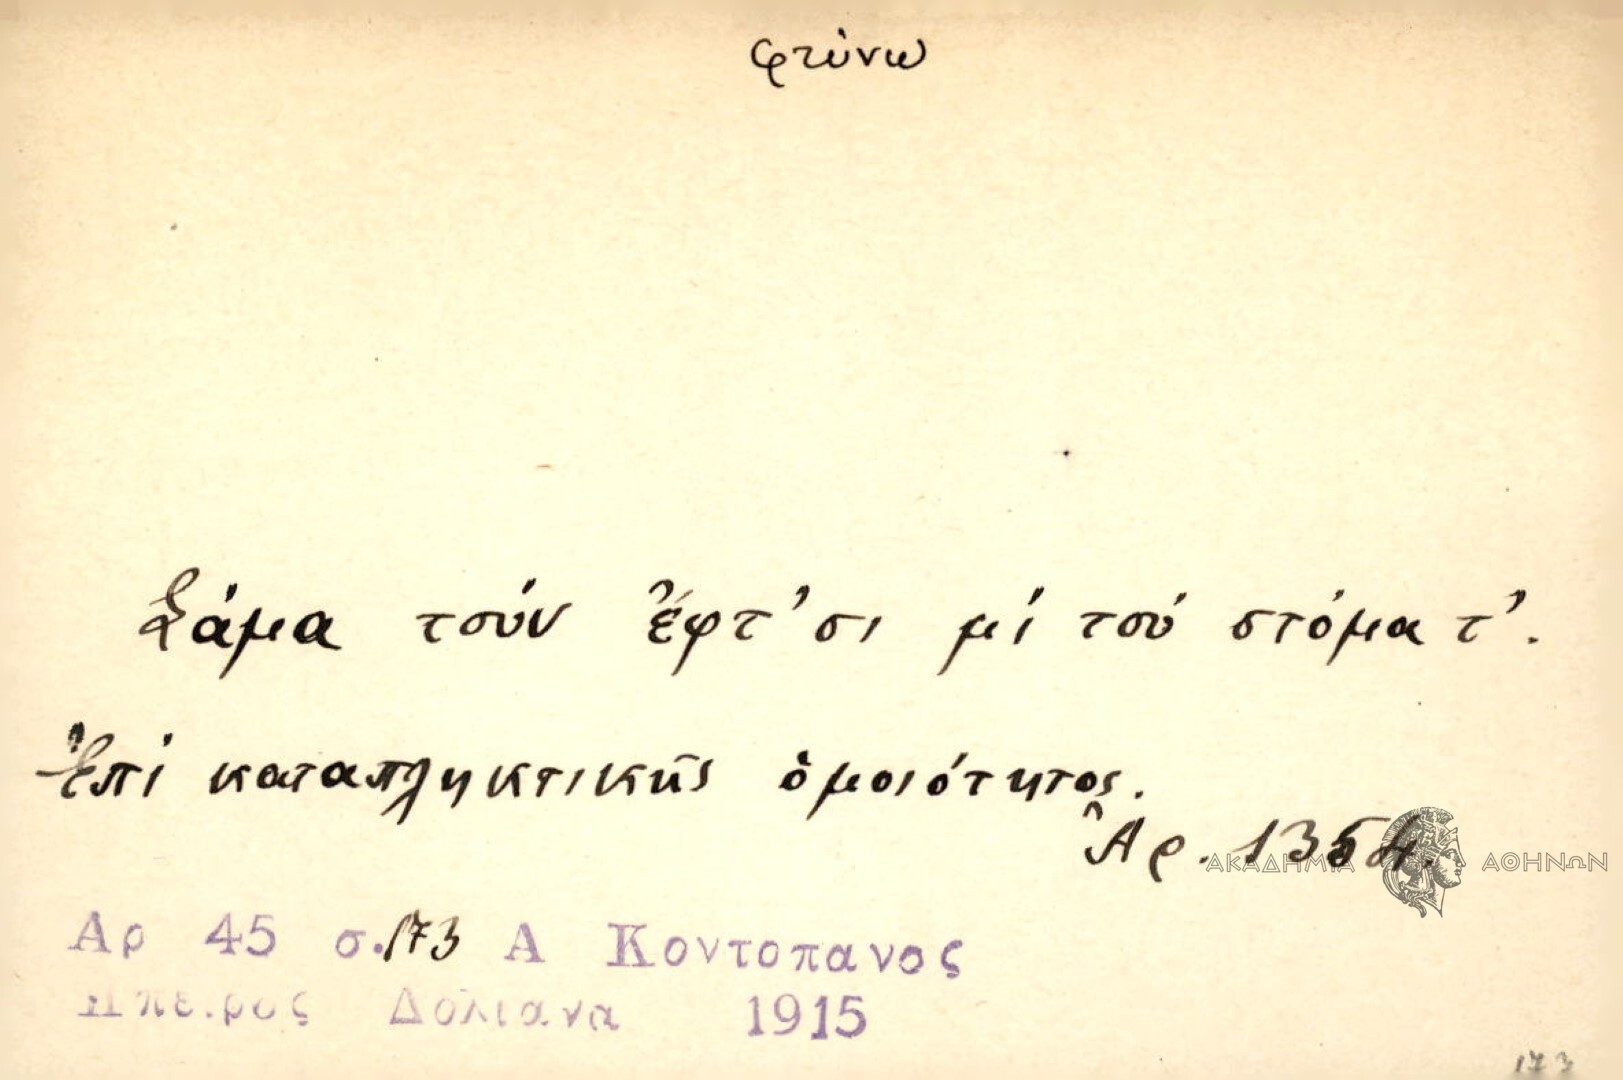 φτύνω
Σάμα τσούν ἔφτ'σι μί τσού στόματ'.
Ἐπί καταπληκτικῆς ὁμοιότητος.
Ἀρ. 1354.
ΑΚΑΔΗΜΙΑ ΑΘΗΝΩΝ
Αρ 45 σ. 173 Α Κοντοπανος
Ηπειρος Δολιανα 1915
173